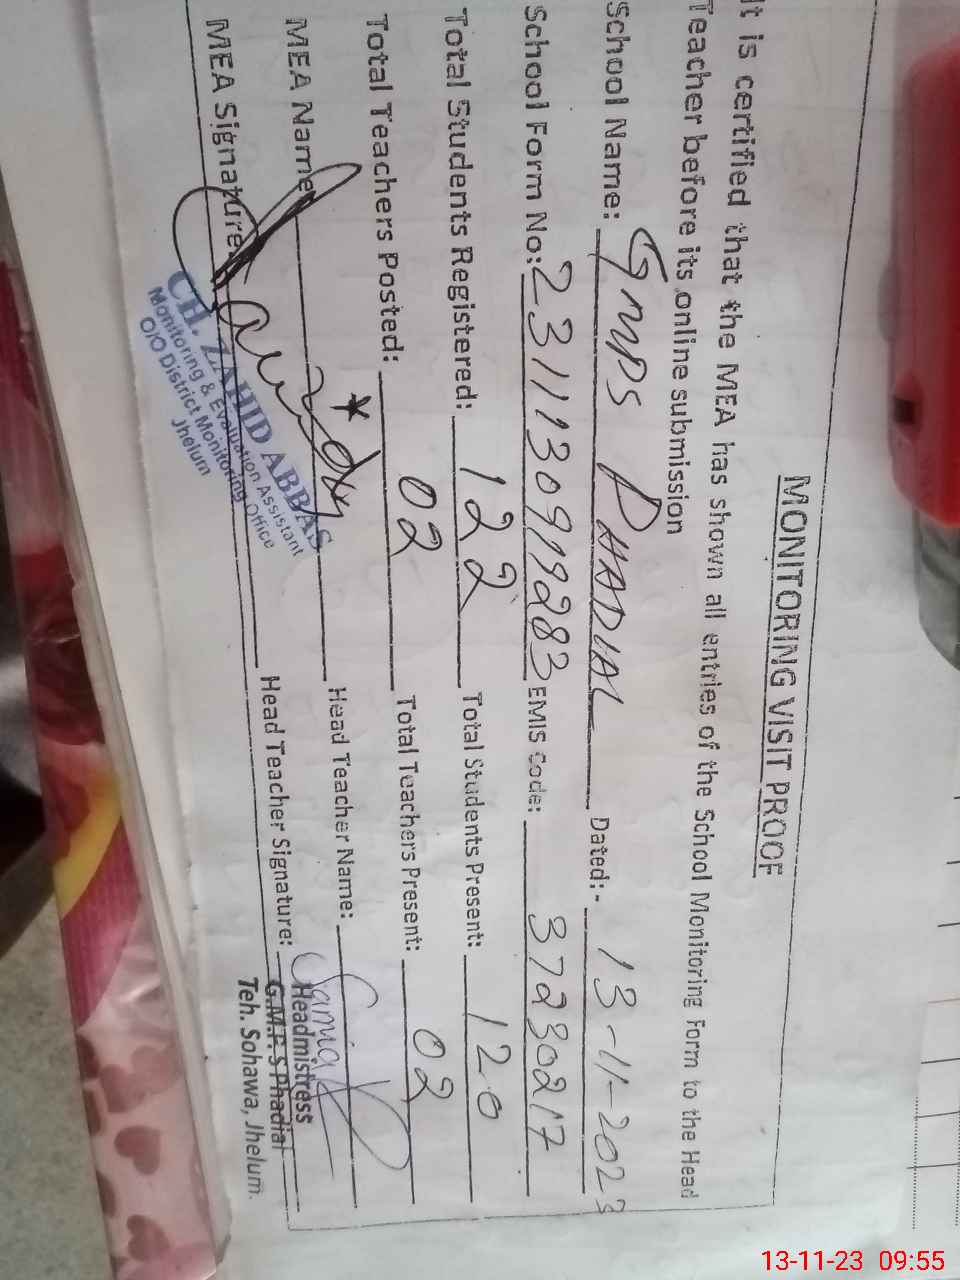 MONITORING VISIT PROOF
It is certified that the MEA has shown all entries of the School Monitoring Form to the Head
Teacher before its online submission
School Name: GMPS PHADIAL Dated:- 13-11-2023
School Form No: 2311130919283 EMIS Code: 37230217
Total Students Registered: 122 Total Students Present: 120
Total Teachers Posted: 02 Total Teachers Present: 02
MEA Name Head Teacher Name:
MEA Signature Head Teacher Signature: Samia
CH. ZAHID ABBAS
Monitoring & Evaluation Assistant
O/O District Monitoring Office
Jhelum
Headmistress
G.M.P.S Phadial
Teh. Sohawa, Jhelum.
13-11-23 09:55